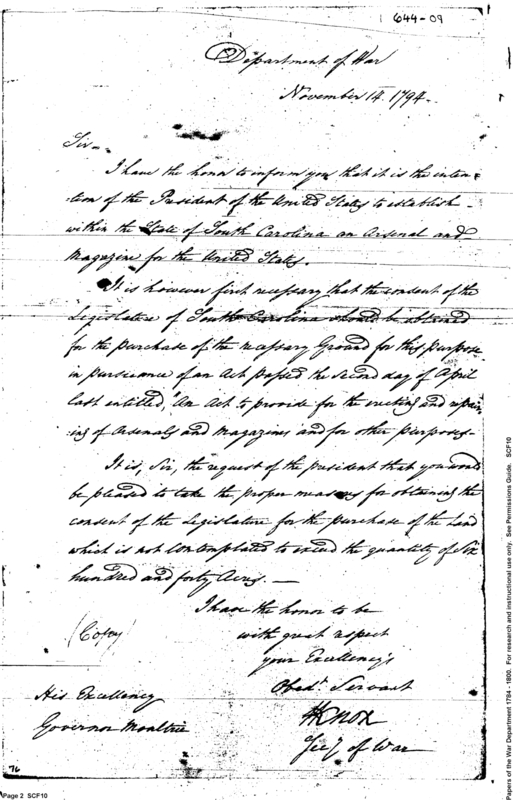 644-09
Department of War
November 14. 1794.
Sir
I have the honor to inform you that it is the inten-
tion of the President of the United States to establish
within the State of South Carolina an Arsenal and
Magazine for the United States.
It is however first necessary that the consent of the
Legislature of South Carolina should be obtained
for the purchase of the necessary Ground for this purpose
in pursuance of an Act passed the Second day of April
last entitled, "An Act to provide for the erecting and repair-
ing of Arsenals and Magazines and for other purposes-
It is, Sir, the request of the president that you would
be pleased to take the proper measures for obtaining the
consent of the Legislature for the purchase of the Land
which is not contemplated to exceed the quantity of Six
hundred and forty Acres. —
I have the honor to be
(Copy) with great respect
your Excellency's
Obedt. Servant
His Excellency
HKnox
Governor Moultrie
Secy of War
76
Page 2 SCF10
Papers of the War Department 1784 - 1800. For research and instructional use only. See Permissions Guide. SCF10